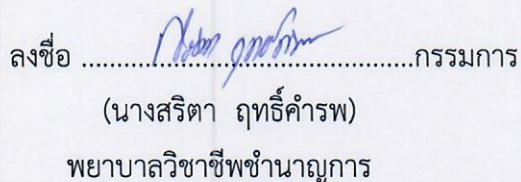 ลงชื่อ ........................................................กรรมการ
(นางสริตา ฤทธิ์คำรพ)
พยาบาลวิชาชีพชำนาญการ